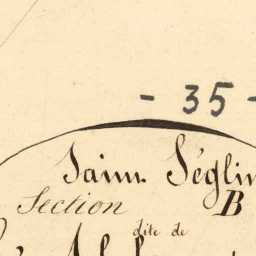 - 35 -
Saint Séglin
Section B
dite de